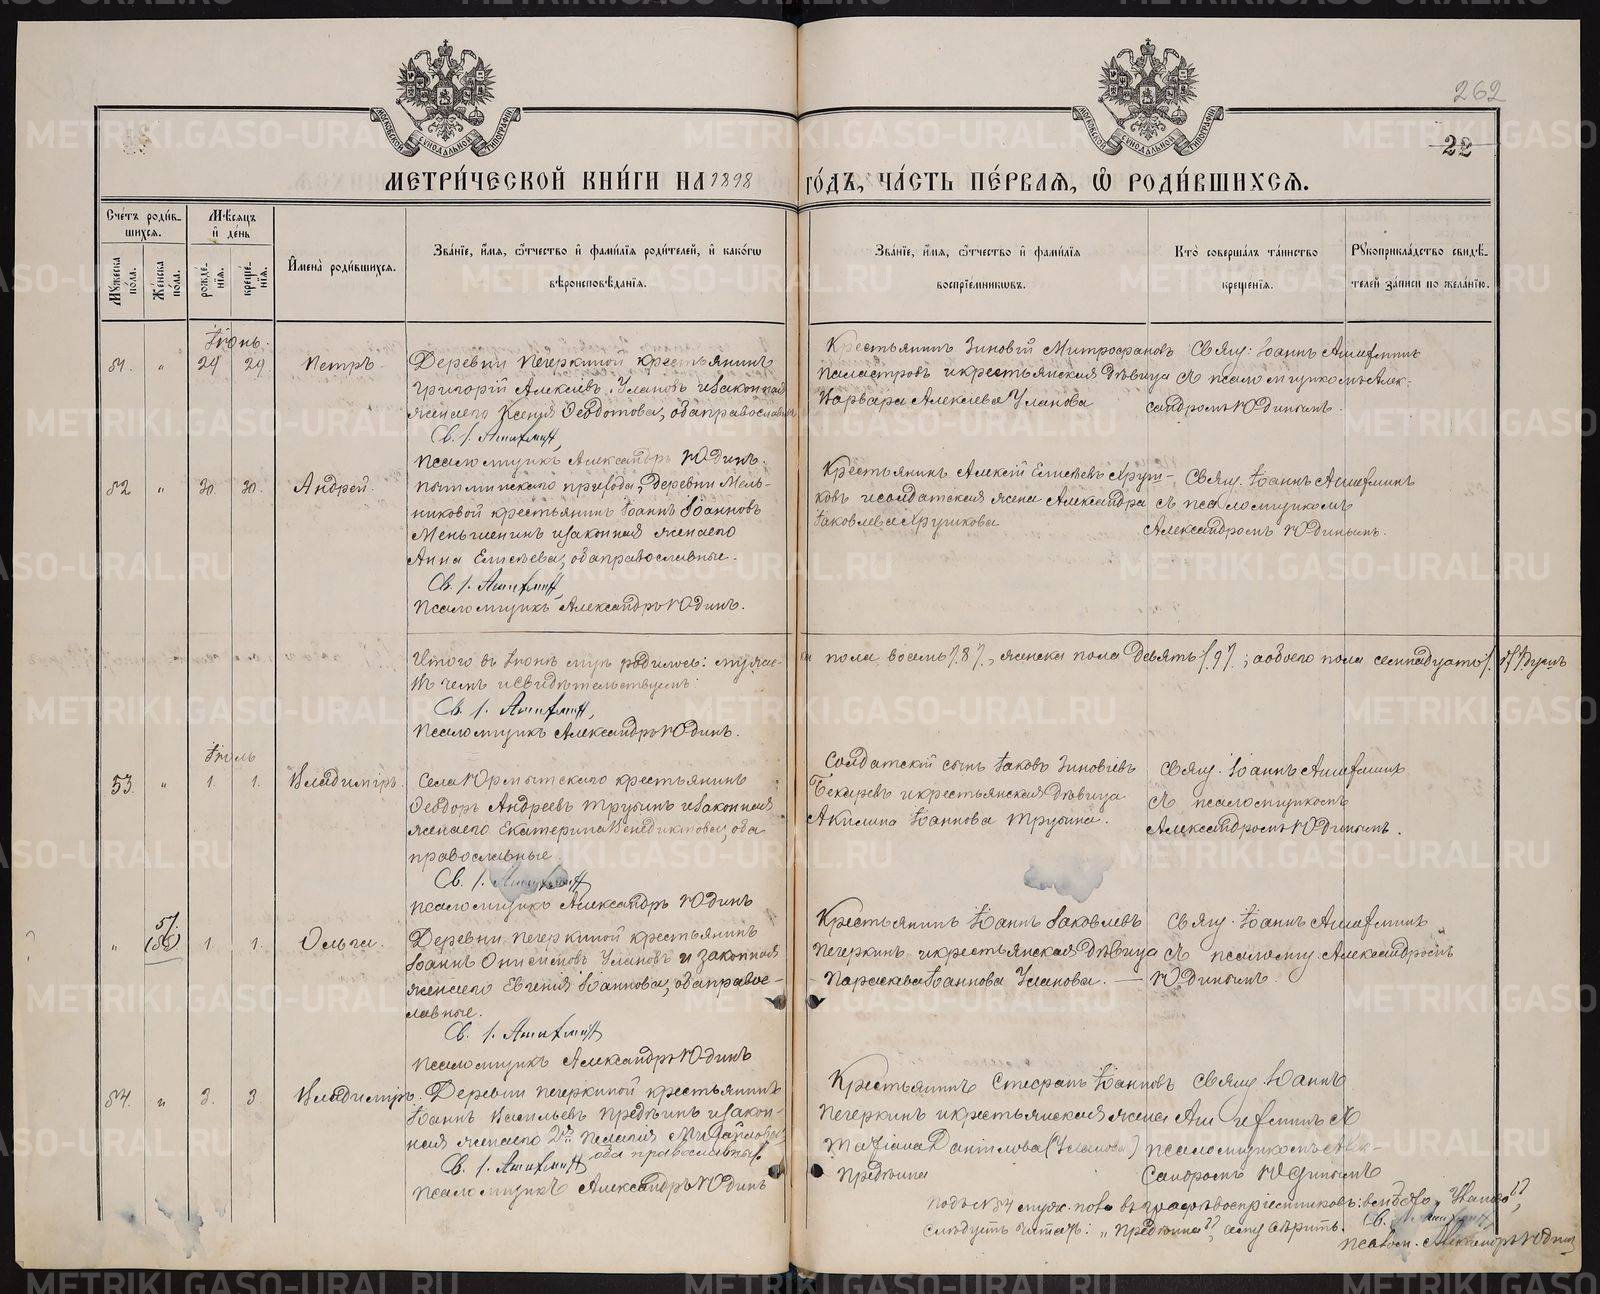 262
22
МОСКОВСКОЙ СѴНОДАЛЬНОЙ ТИПОГРАФІИ
МОСКОВСКОЙ СѴНОДАЛЬНОЙ ТИПОГРАФІИ
МЕТРИ́ЧЕСКОЙ КНИ́ГИ НА 1898 ГО́ДЪ, ЧА́СТЬ ПЕ́РВАЯ, Ѡ РОДИ́ВШИХСЯ.
Сче́тъ роди́вшихся.
Мѣ́сяцъ и҆ де́нь
Му́жеска по́ла.
Же́нска по́ла.
рожде́нїя.
креще́нїя.
И҆мена̀ роди́вшихся.
Зва́нїе, и҆́мя, ѻ҆́тчество и҆ фами́лїя роди́телей, и҆ како́гѡ вѣроисповѣ́данїя.
Зва́нїе, и҆́мя, ѻ҆́тчество и҆ фами́лїя воспрїе́мникѡвъ.
Кто̀ соверша́лъ та́инство креще́нїя.
Рꙋкоприкла́дство свидѣ́телей за́писи по жела́нїю.
Іюнь.
51. " 29 29 Петръ.
Деревни Печеркиной крестьянинъ
Григорій Алексѣевъ Улановъ и законная
жена его Ксенія Ѳеодотова, оба православные
Св. І.
Псаломщикъ Александръ Юдинъ.
Крестьянинъ Зиновій Митрофановъ
и крестьянская дѣвица
Варвара Алексѣева Уланова
Свящ. Іоаннъ
съ псаломщикомъ Алек-
сандромъ Юдинымъ.
52 " 30. 30. Андрей.
Пышминскаго прихода, деревни Мель-
никовой крестьянинъ Іоаннъ Іоанновъ
Меньшенинъ и законная жена его
Анна Елисѣева, оба православные.
Св. І.
Псаломщикъ Александръ Юдинъ.
Крестьянинъ Алексій Елисѣевъ Хруш-
ковъ и солдатская жена Александра
Іаковлева Хрушкова
Свящ. Іоаннъ
съ псаломщикомъ
Александромъ Юдинымъ.
Итого въ Іюнѣ м-цѣ родилось: мужес-
ка пола восемь /8/, женска пола девять /9/; а обоего пола семнадцать /17/ душъ
въ чемъ и свидѣтельствуемъ:
Св. І.
Псаломщикъ Александръ Юдинъ.
Іюль
53. " 1 1. Владиміръ.
Села Юрмытскаго крестьянинъ
Ѳеодоръ Андреевъ Трубинъ и законная
жена его Екатерина Венедиктова, оба
православные.
Св. І.
Псаломщикъ Александръ Юдинъ
Солдатскій сынъ Іаковъ Зиновіевъ
и крестьянская дѣвица
Акилина Іоаннова Трубина.
Свящ. Іоаннъ
съ псаломщикомъ
Александромъ Юдинымъ.
" 51. 1. 1. Ольга.
Деревни Печеркиной крестьянинъ
Іоаннъ Онисимовъ Улановъ и законная
жена его Евгенія Іоаннова, оба правос-
лавные.
Св. І.
Псаломщикъ Александръ Юдинъ
Крестьянинъ Іоаннъ Іаковлевъ
Печеркинъ и крестьянская дѣвица
Параскева Іоаннова Уланова.
Свящ. Іоаннъ
съ псаломщ. Александромъ
Юдинымъ.
54. " 3. 3 Владиміръ.
Деревни Печеркиной крестьянинъ
Іоаннъ Васильевъ Предѣинъ и закон-
ная жена его Пелагія Михайлова,
оба православные.
Св. І.
Псаломщикъ Александръ Юдинъ
Крестьянинъ Стефанъ Іоанновъ
Печеркинъ и крестьянская жена
Татіана Даніилова (Уланова)
Предѣина
Свящ. Іоаннъ
съ
псаломщикомъ Алек-
сандромъ Юдинымъ
Подъ № 54 муж. пола въ графѣ воспріемниковъ: вмѣсто „Уланова",
слѣдуетъ читать: „Предѣина", чему вѣрить. Св. І.
псалом. Александръ Юдинъ
METRIKI.GASO-URAL.RU